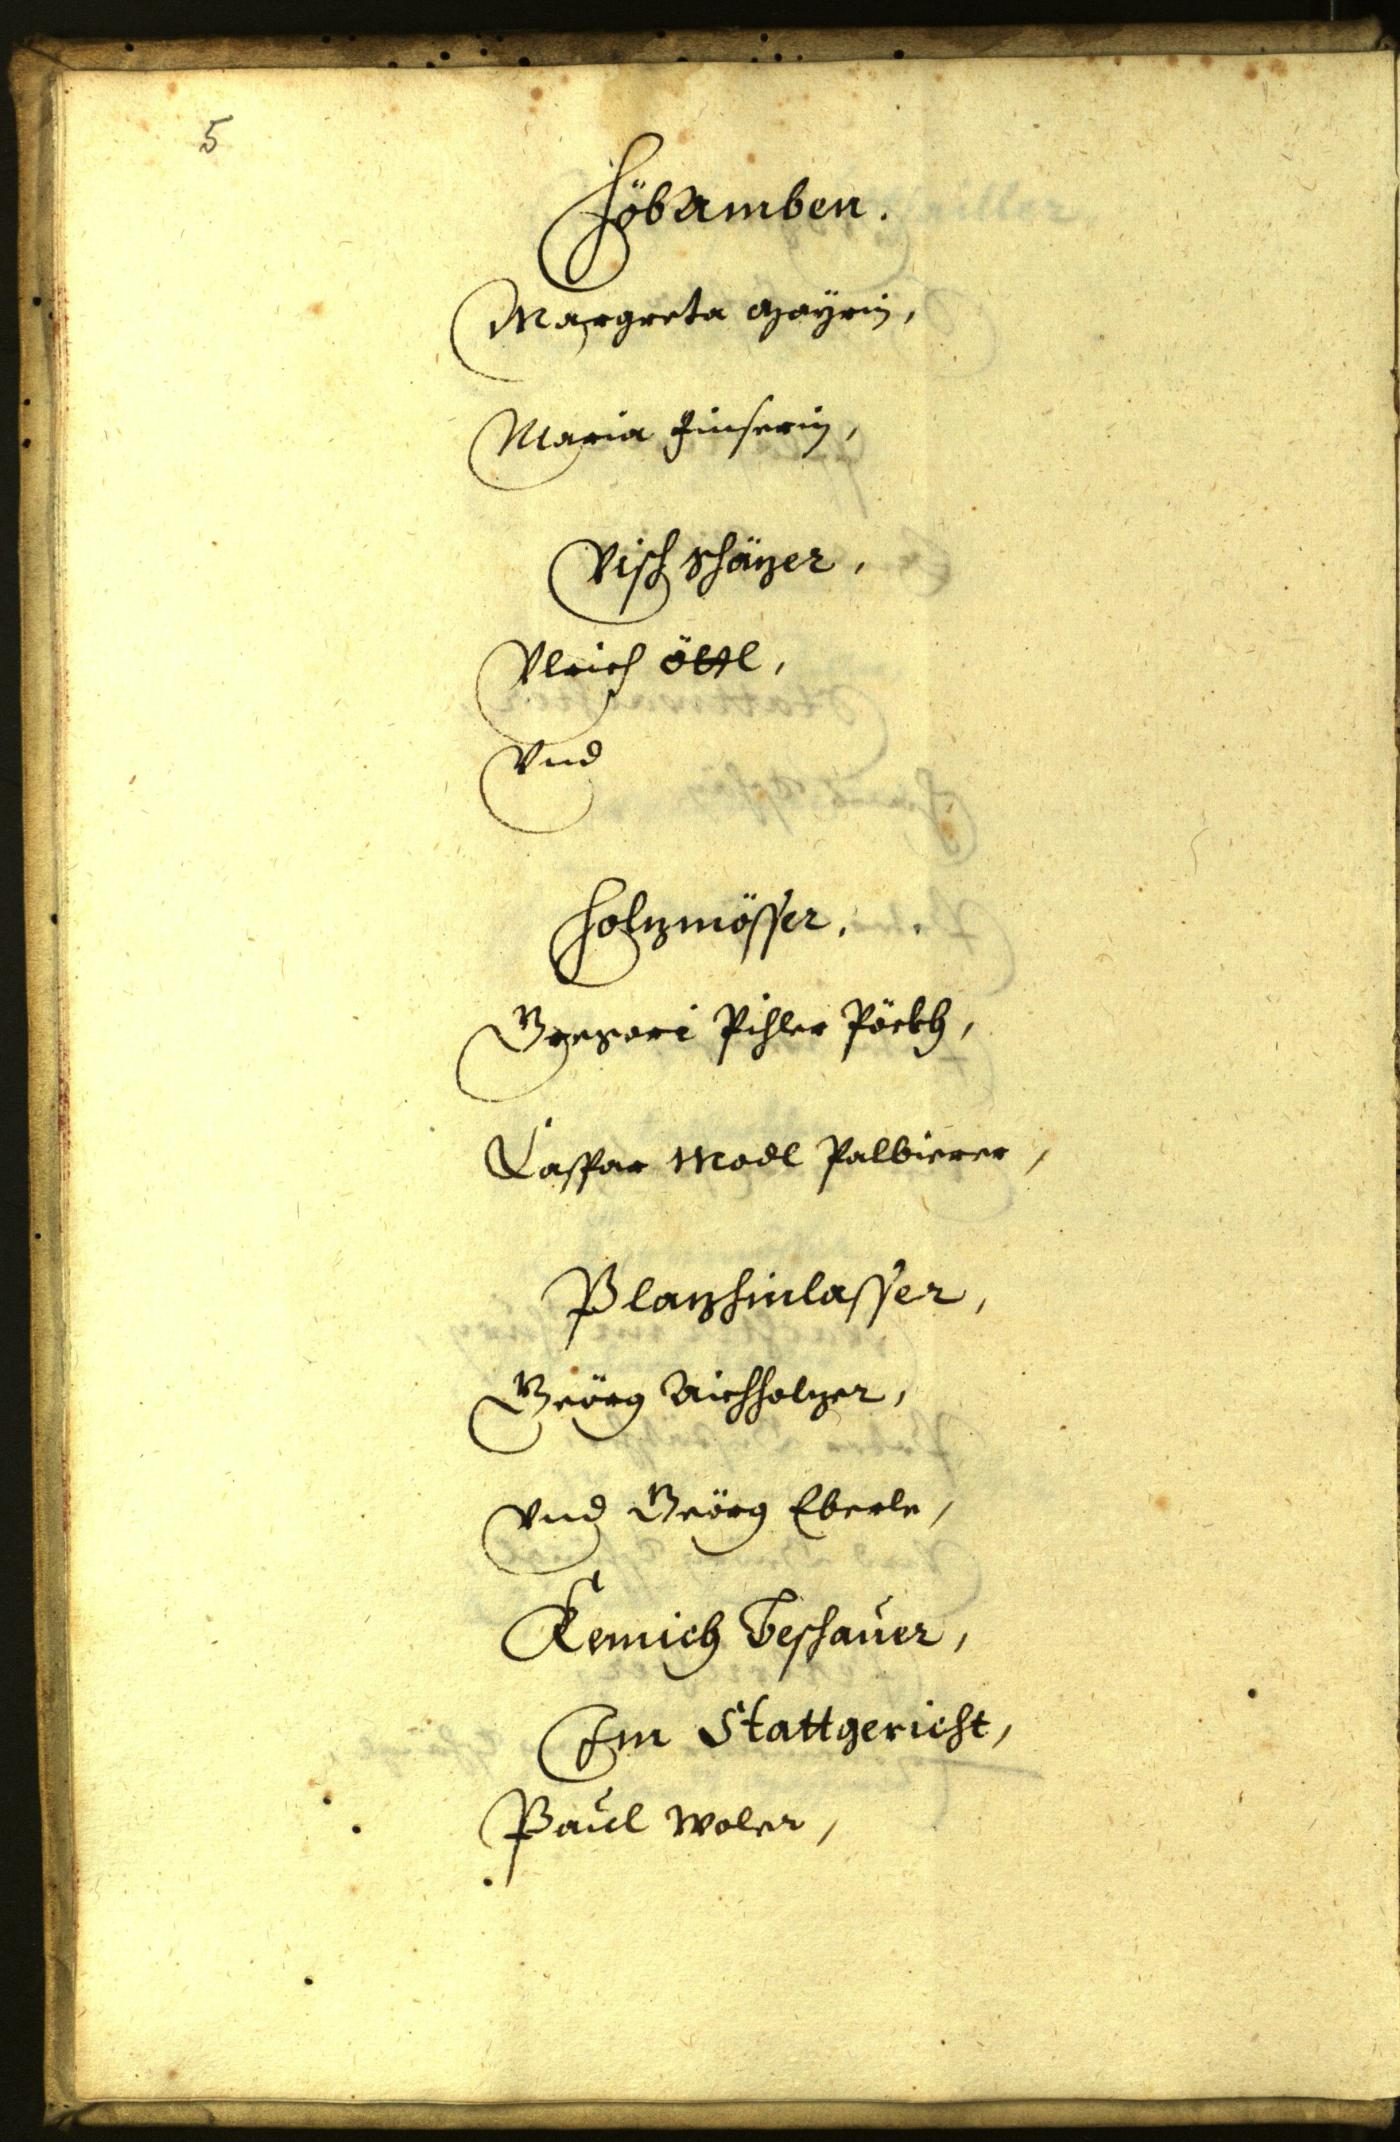 5
Höbamben.
Margreta Mayrin,
Maria Finserin,
Visch Schäzer,
Vlrich Öttl,
Vnd
Holzmösser.
Gregori Pihler Pöckh,
Caspar Modl Palbierer,
Plazhinlasser,
Geörg Aichholzer,
Vnd Geörg Eberle,
Kemich Beschauer,
Im Stattgericht,
Paul Woler,